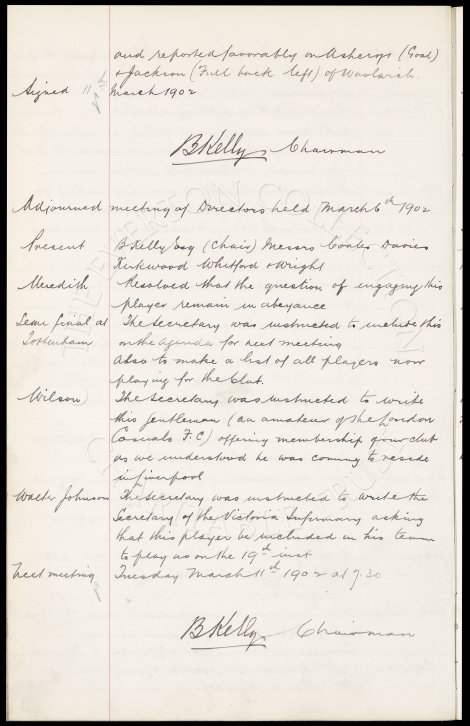 and reported favorably on Ashcroft (Goal)
& Jackson (Full back left) of Woolwich.
Signed 11th March 1902
B Kelly Chairman
Adjourned meeting of Directors held March 6th 1902
Present B Kelly Esq (Chair) Messrs Coates Davies
Kirkwood Whitford & Wright
Meredith Resolved that the question of engaging this
player remain in abeyance
Semi final at The Secretary was instructed to include this
Tottenham on the agenda for next meeting
Also to make a list of all players now
playing for the Club.
Wilson The Secretary was instructed to write
this gentleman (an amateur of the London
Casuals F.C) offering membership of our club
as we understood he was coming to reside
in Liverpool
Walter Johnson The Secretary was instructed to write the
Secretary of the Victoria Infirmary asking
that this player be included in his team
to play us on the 19th inst
Next meeting Tuesday March 11th 1902 at 7.30
B Kelly Chairman